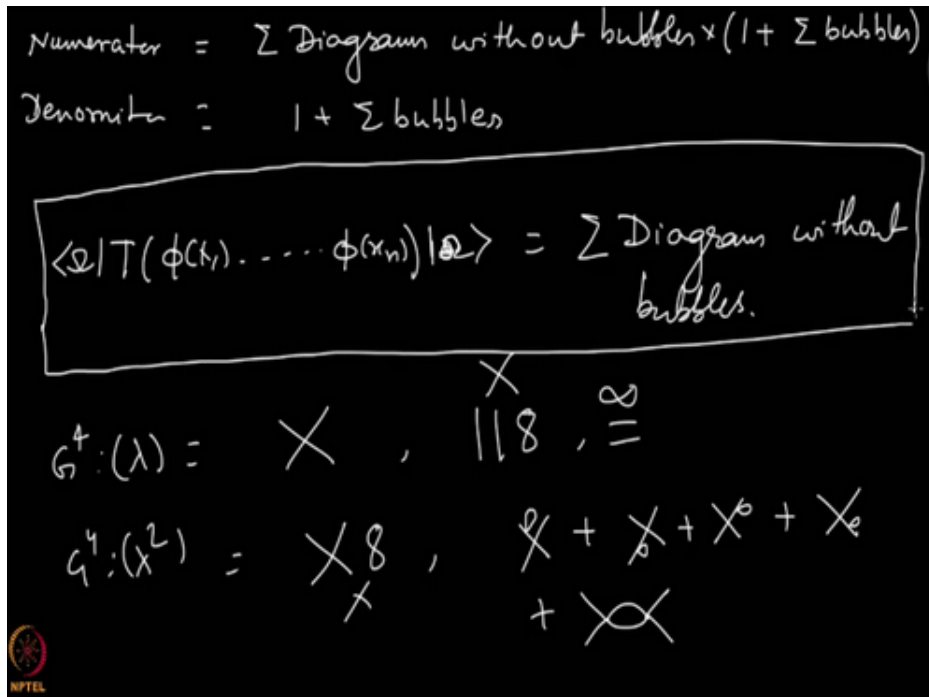 Numerator = Σ Diagram without bubbles × (1 + Σ bubbles)
Denomiter = 1 + Σ bubbles
<Ω|T(φ(x₁).....φ(xₙ))|Ω> = Σ Diagram without
bubbles.
G⁴:(λ) = X , ||8 , ∞ =
G⁴:(λ²) = X 8 , + + +
+
NPTEL